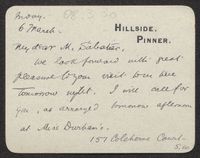 Friday.
6 March.
HILLSIDE,
PINNER.
My dear M. Sabatier,
We look forward with great
pleasure to your visit to us here
Tomorrow night. I will call for
you, as arranged tomorrow afternoon
at Miss Durham's.
157 Coleherne Court
5.